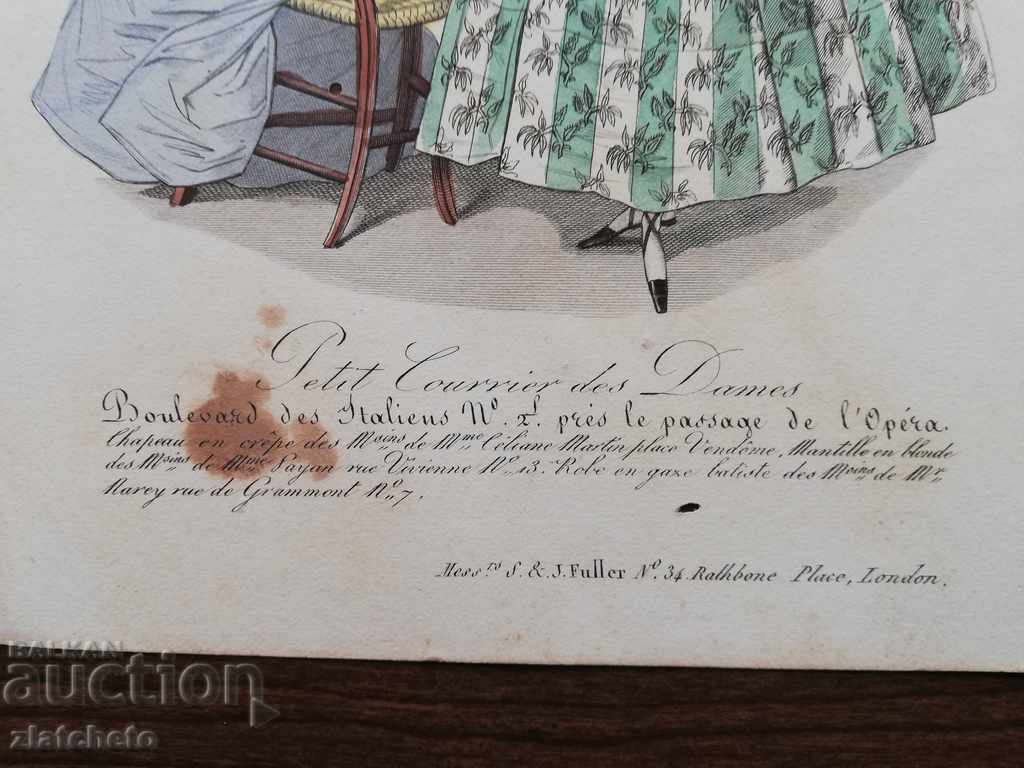 Petit Courrier des Dames
Boulevard des Italiens Nº. 2. près le passage de l'Opéra.
Chapeau en crêpe des Msins de Mme Céliane Martin place Vendôme, Mantille en blonde
des Msins de Mme Payan rue Vivienne Nº 13. Robe en gaze batiste des Msins de Mr
Marey rue de Grammont Nº 7.
Messrs S. & J. Fuller Nº. 34 Rathbone Place, London.
BALKAN
auction
zlatcheto